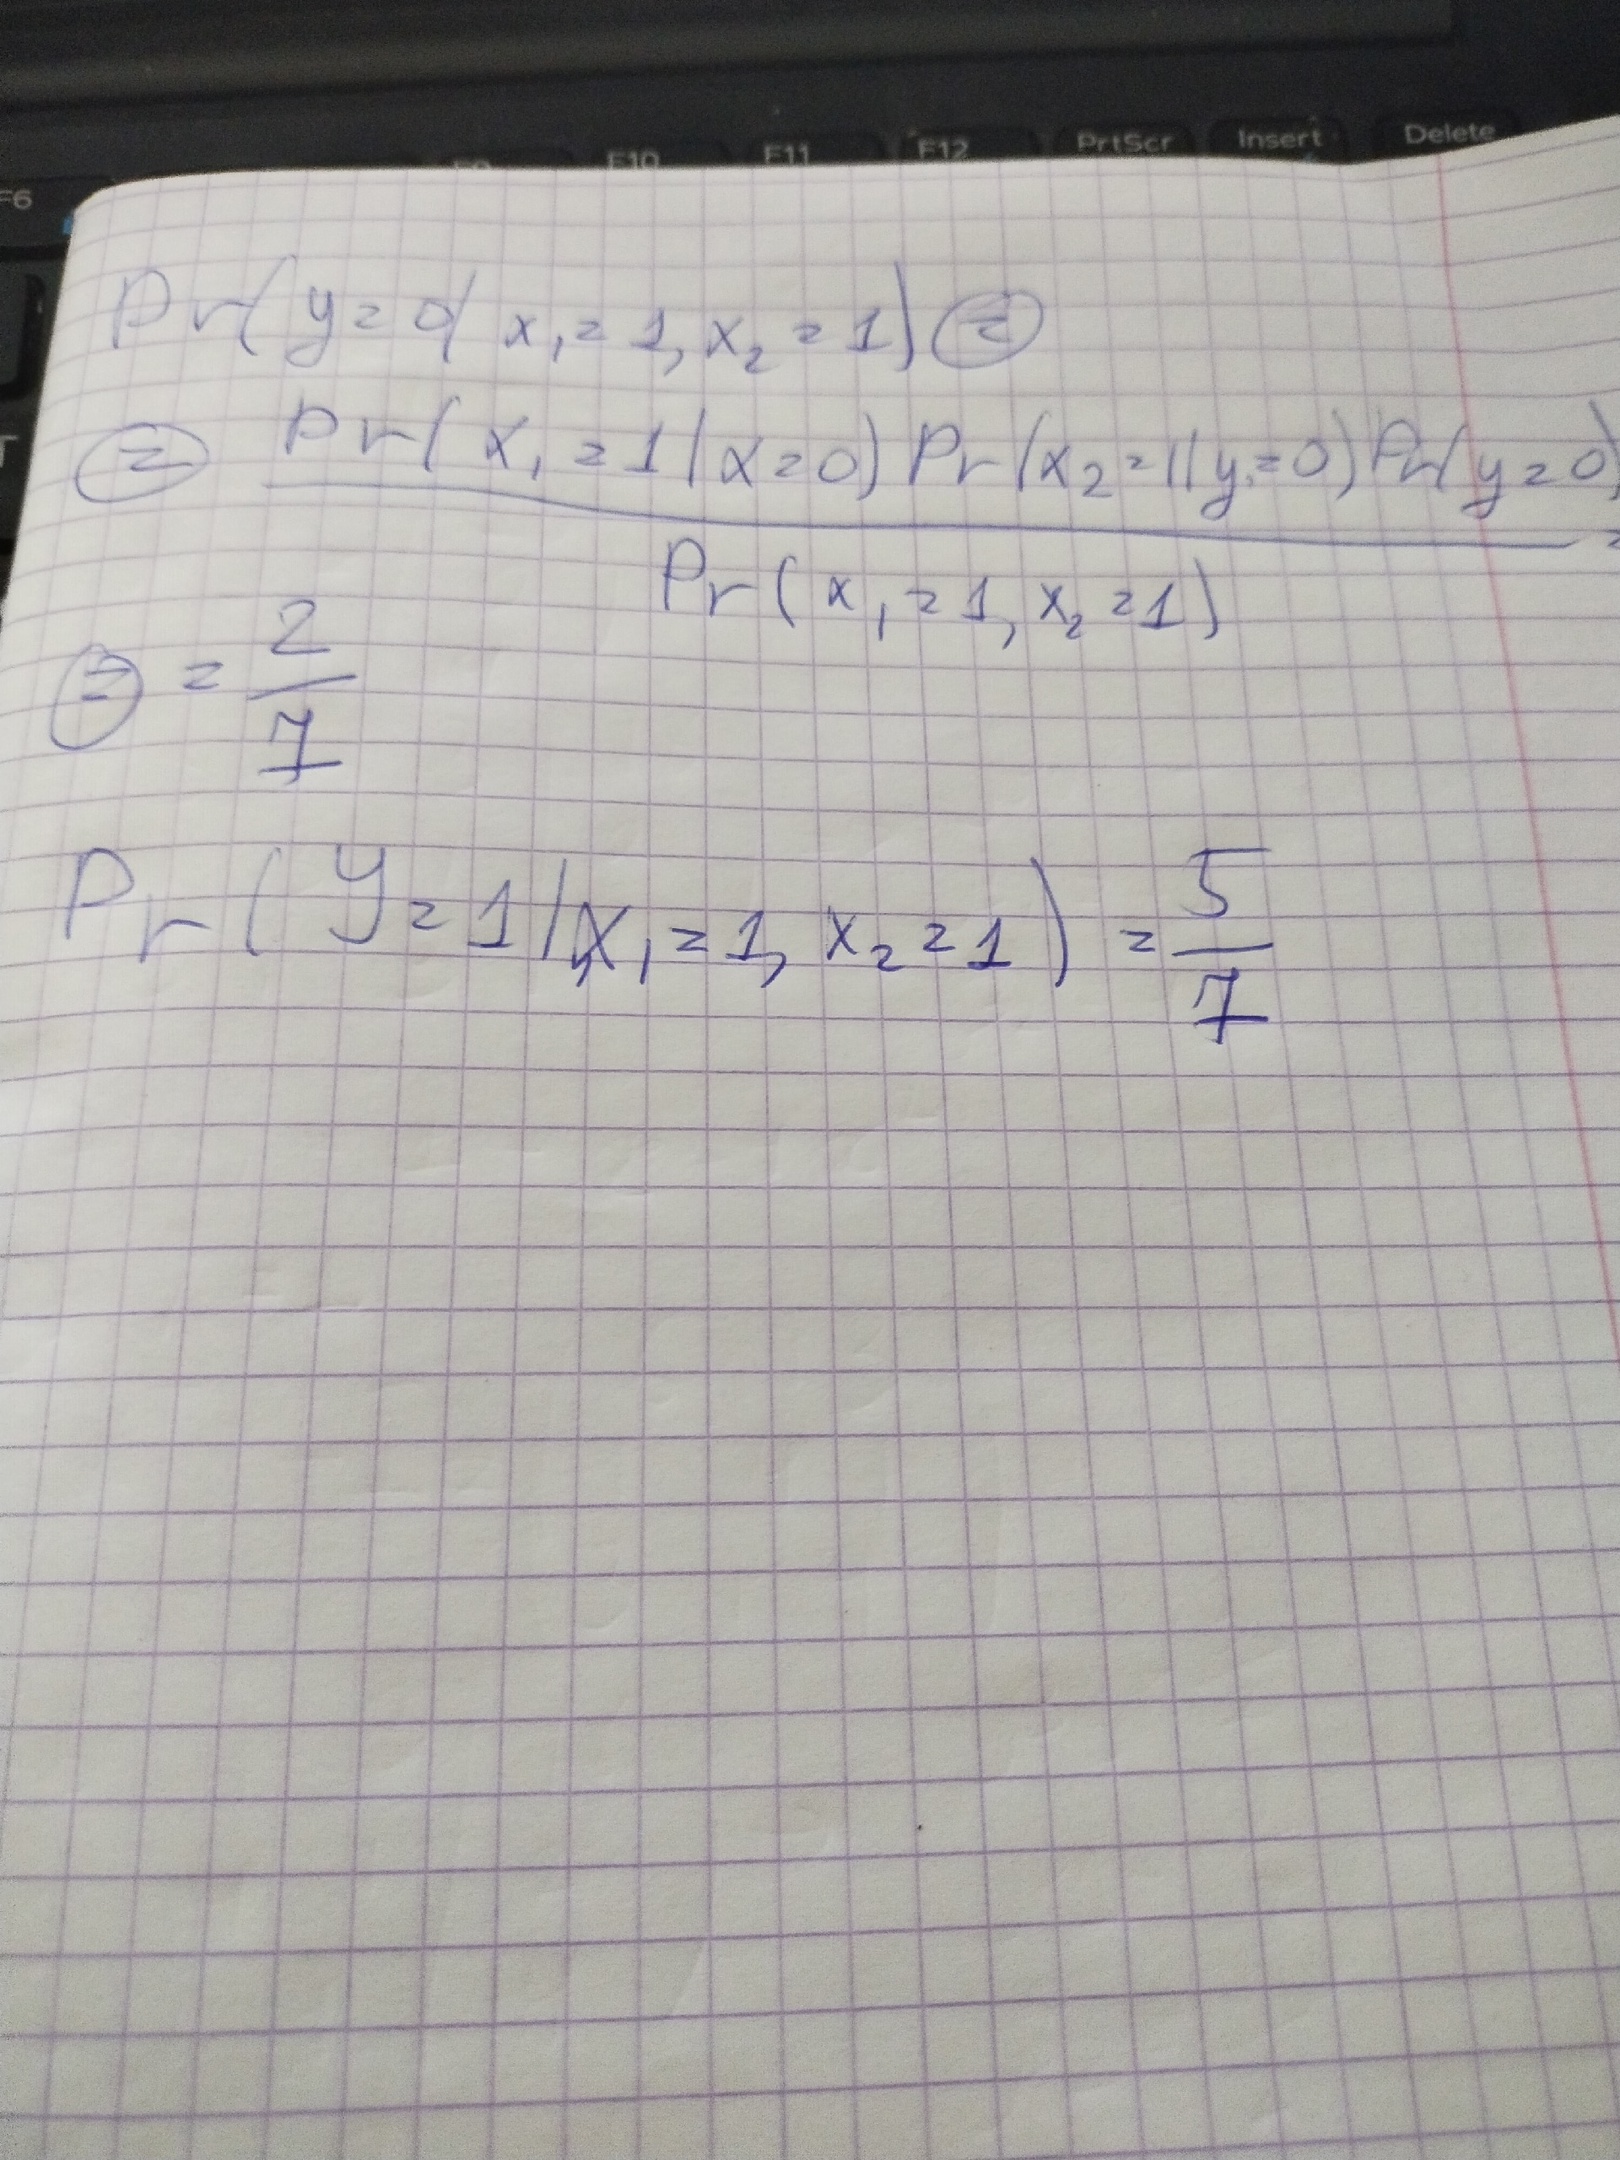 F6 F9 F10 F11 F12 PrtScr Insert Delete
Pr(y=0|x₁=1, x₂=1) ⊜
⊜ Pr(x₁=1|x=0) Pr(x₂=1|y=0) Pr(y=0) =
Pr(x₁=1, x₂=1)
⊜ = 2/7
Pr(y=1|x₁=1, x₂=1) = 5/7